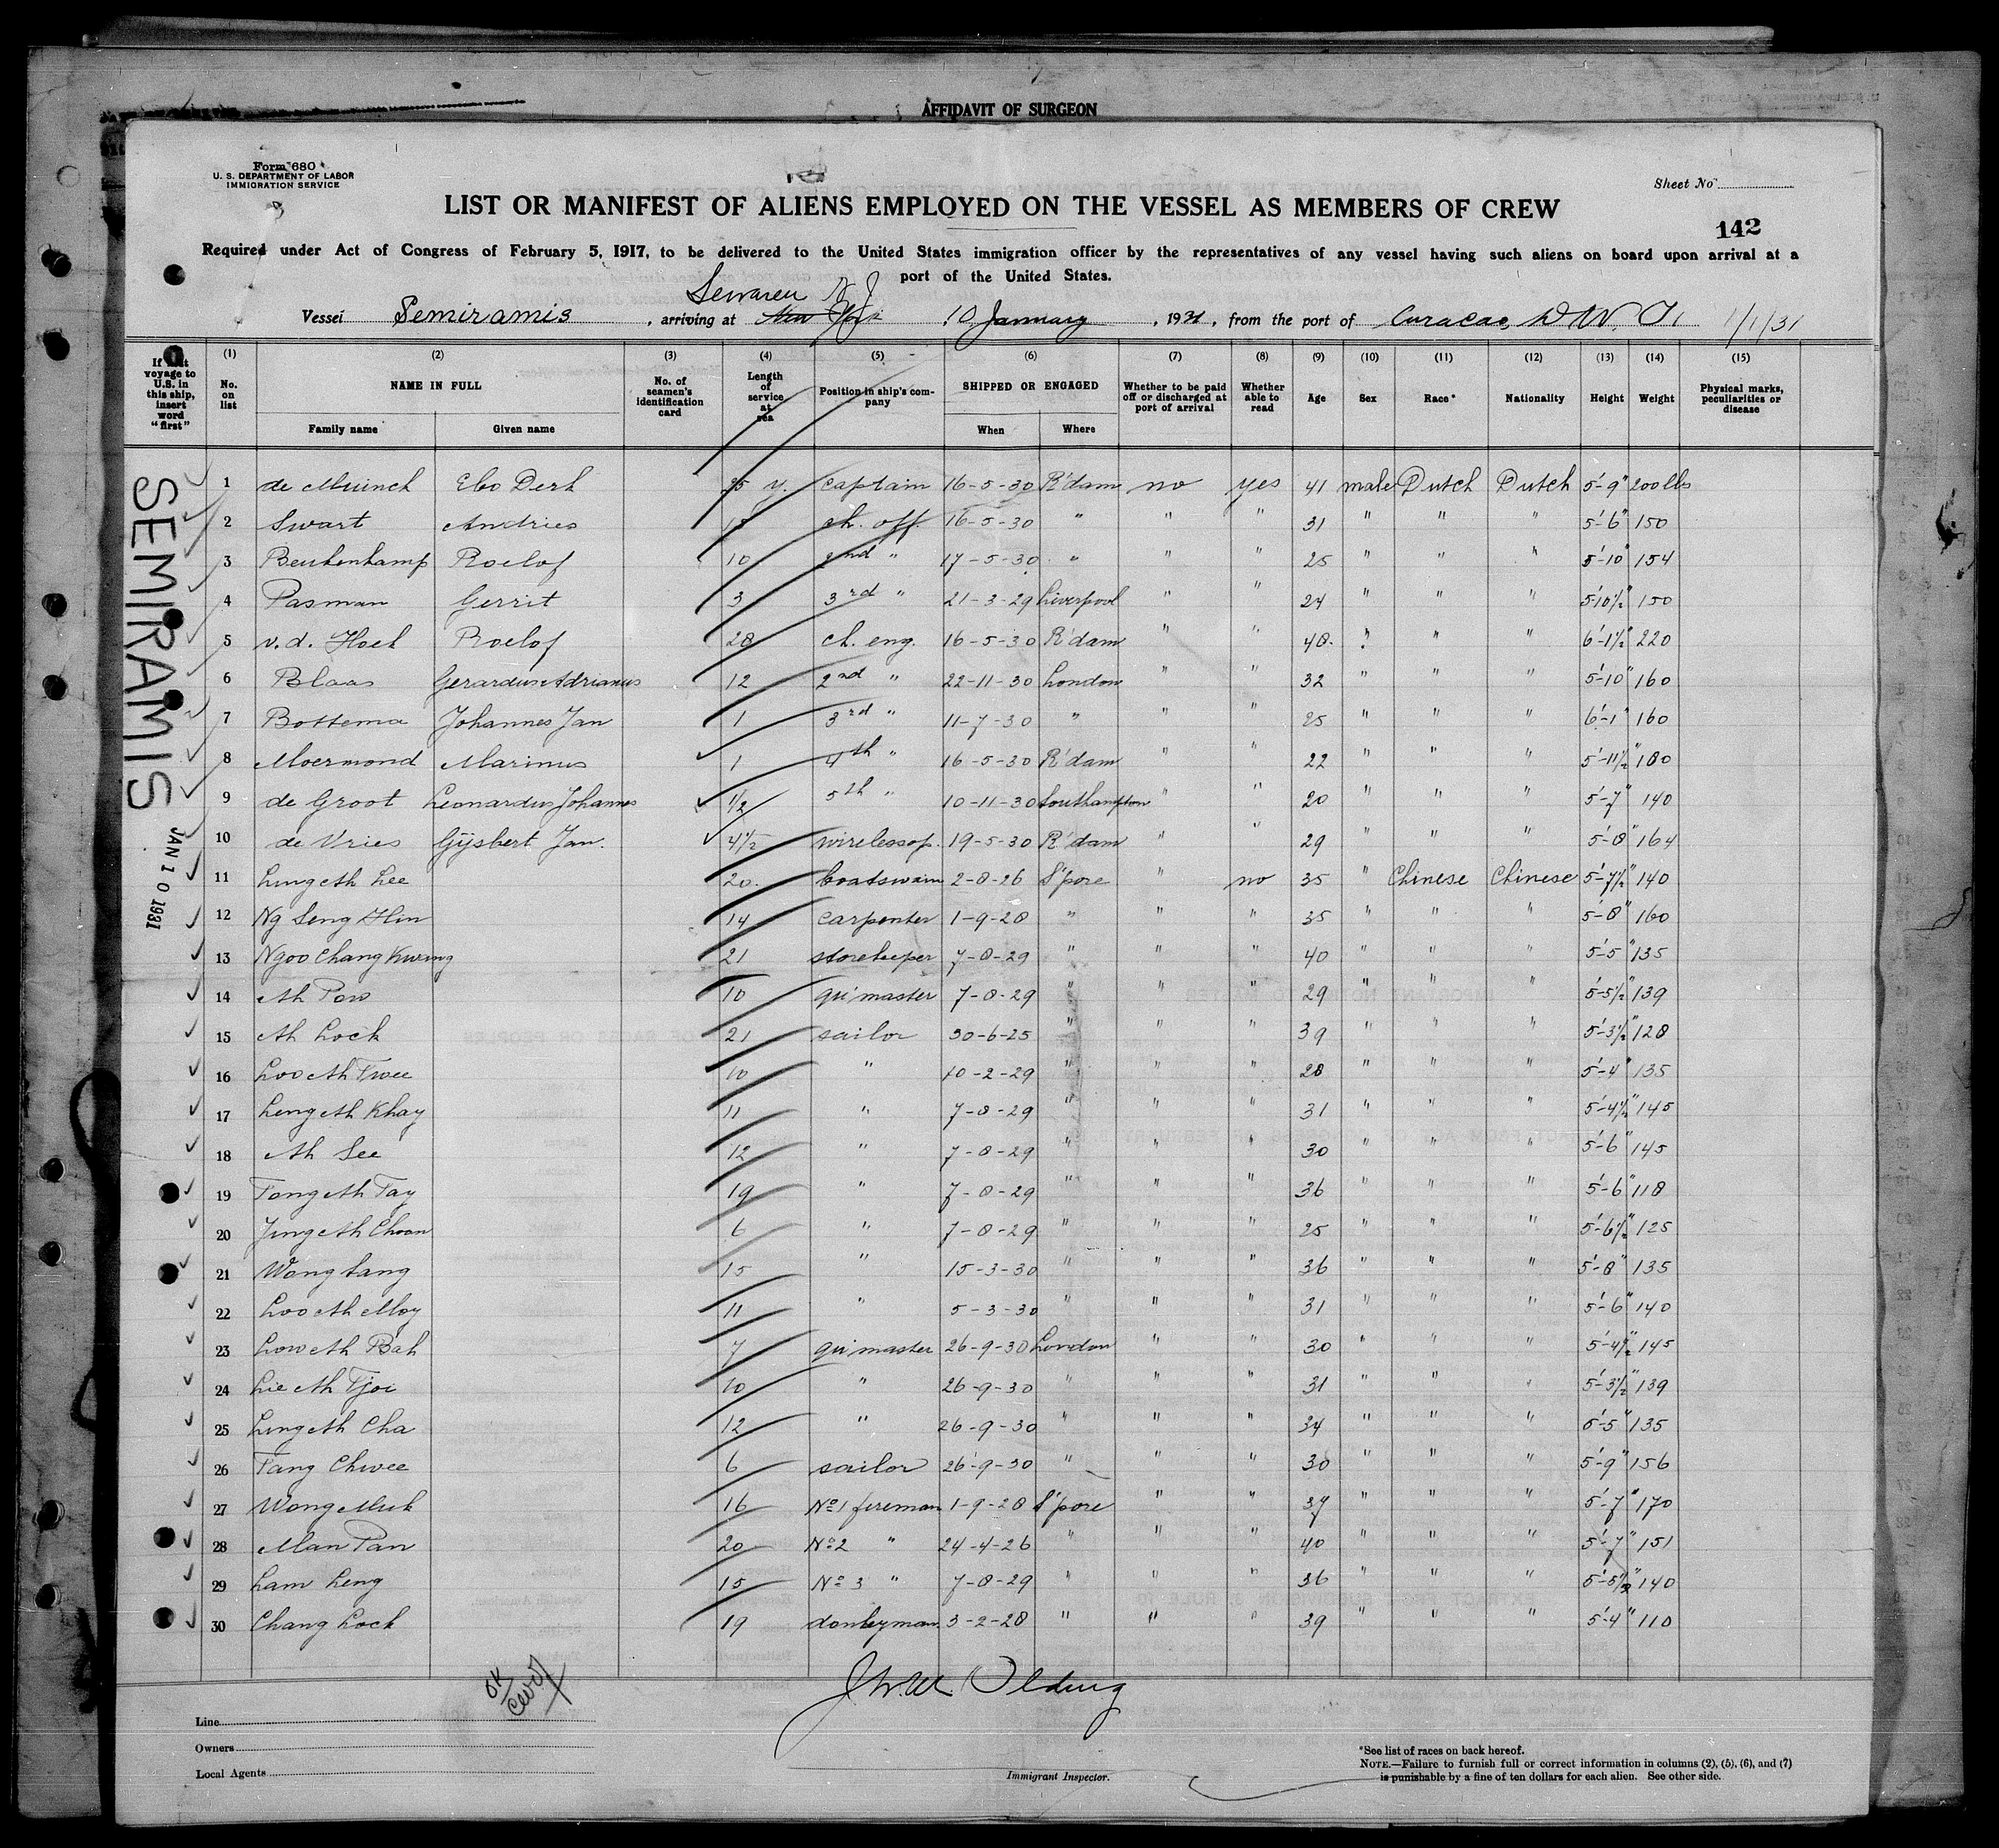 AFFIDAVIT OF SURGEON
Form 680
U. S. DEPARTMENT OF LABOR
IMMIGRATION SERVICE
Sheet No
LIST OR MANIFEST OF ALIENS EMPLOYED ON THE VESSEL AS MEMBERS OF CREW
142
Required under Act of Congress of February 5, 1917, to be delivered to the United States immigration officer by the representatives of any vessel having such aliens on board upon arrival at a
port of the United States.
Sewaren N J
Vessel Semiramis, arriving at New York 10 January, 1931, from the port of Curacao, D. W. I. 1/1/31
If first voyage to U.S. in this ship, insert word "first"
(1) No. on list
(2) NAME IN FULL Family name Given name
(3) No. of seamen's identification card
(4) Length of service at sea
(5) Position in ship's company
(6) SHIPPED OR ENGAGED When Where
(7) Whether to be paid off or discharged at port of arrival
(8) Whether able to read
(9) Age
(10) Sex
(11) Race*
(12) Nationality
(13) Height
(14) Weight
(15) Physical marks, peculiarities or disease
SEMIRAMIS
JAN 10 1931
1 de Muinck Ebo Derk 25 y. captain 16-5-30 R'dam no yes 41 male Dutch Dutch 5'-9" 200 lbs
2 Swart Andries ch. off. 16-5-30 " " " 31 " " " 5'-6" 150
3 Beukenkamp Roelof 10 2nd " 17-5-30 " " " 25 " " " 5'-10" 154
4 Pasman Gerrit 3 3rd " 21-3-29 Liverpool " " 24 " " " 5'10½" 150
5 v.d. Hoek Roelof 28 ch. eng. 16-5-30 R'dam " " 48 " " " 6'-1½" 220
6 Blaas Gerardus Adrianus 12 2nd " 22-11-30 London " " 32 " " " 5'-10" 160
7 Bottema Johannes Jan 1 3rd " 11-7-30 " " " 25 " " " 6'-1" 160
8 Moermond Marinus 1 4th " 16-5-30 R'dam " " 22 " " " 5'-11½" 180
9 de Groot Leonardus Johannes 1/2 5th " 10-11-30 Southampton " " 20 " " " 5'-7" 140
10 de Vries Gijsbert Jan. 4½ wireless op. 19-5-30 R'dam " " 29 " " " 5'-8" 164
11 Ling Ah Lee 20 boatswain 2-8-26 S'pore " no 35 " Chinese Chinese 5'-7½" 140
12 Ng Seng Hin 14 carpenter 1-9-28 " " " 35 " " " 5'-8" 160
13 Ngoo Chang Kwong 21 storekeeper 7-8-29 " " " 40 " " " 5'-5" 135
14 Ah Pow 10 qu'master 7-8-29 " " " 29 " " " 5'-5½" 139
15 Ah Lock 21 sailor 30-6-25 " " " 39 " " " 5'-3½" 128
16 Loo Ah Twee 10 " 10-2-29 " " " 28 " " " 5'-4" 135
17 Leng Ah Khay 11 " 7-8-29 " " " 31 " " " 5'-4½" 145
18 Ah See 12 " 7-8-29 " " " 30 " " " 5'-6" 145
19 Tong Ah Tay 19 " 7-8-29 " " " 36 " " " 5'-6" 118
20 Jing Ah Choon 6 " 7-8-29 " " " 25 " " " 5'-6½" 125
21 Wong Sang 15 " 15-3-30 " " " 36 " " " 5'-8" 135
22 Loo Ah Moy 11 " 5-3-30 " " " 31 " " " 5'-6" 140
23 Low Ah Bah 7 qu'master 26-9-30 London " " 30 " " " 5'-4½" 145
24 Lie Ah Tjoi 10 " 26-9-30 " " " 31 " " " 5'-3½" 139
25 Ling Ah Cha 12 " 26-9-30 " " " 34 " " " 5'-5" 135
26 Tang Chwee 6 sailor 26-9-30 " " " 30 " " " 5'-9" 156
27 Wong Muk 16 No 1 fireman 1-9-28 S'pore " " 37 " " " 5'-7" 170
28 Man Pan 20 No 2 " 24-4-26 " " " 40 " " " 5'-7" 151
29 Lam Leng 15 No 3 " 7-8-29 " " " 36 " " " 5'-5½" 140
30 Chang Lock 19 donkeyman 3-2-28 " " " 39 " " " 5'-4" 110
OK
Line
Owners
Local Agents
Olding
Immigrant Inspector.
*See list of races on back hereof.
NOTE.—Failure to furnish full or correct information in columns (2), (5), (6), and (7)
is punishable by a fine of ten dollars for each alien. See other side.